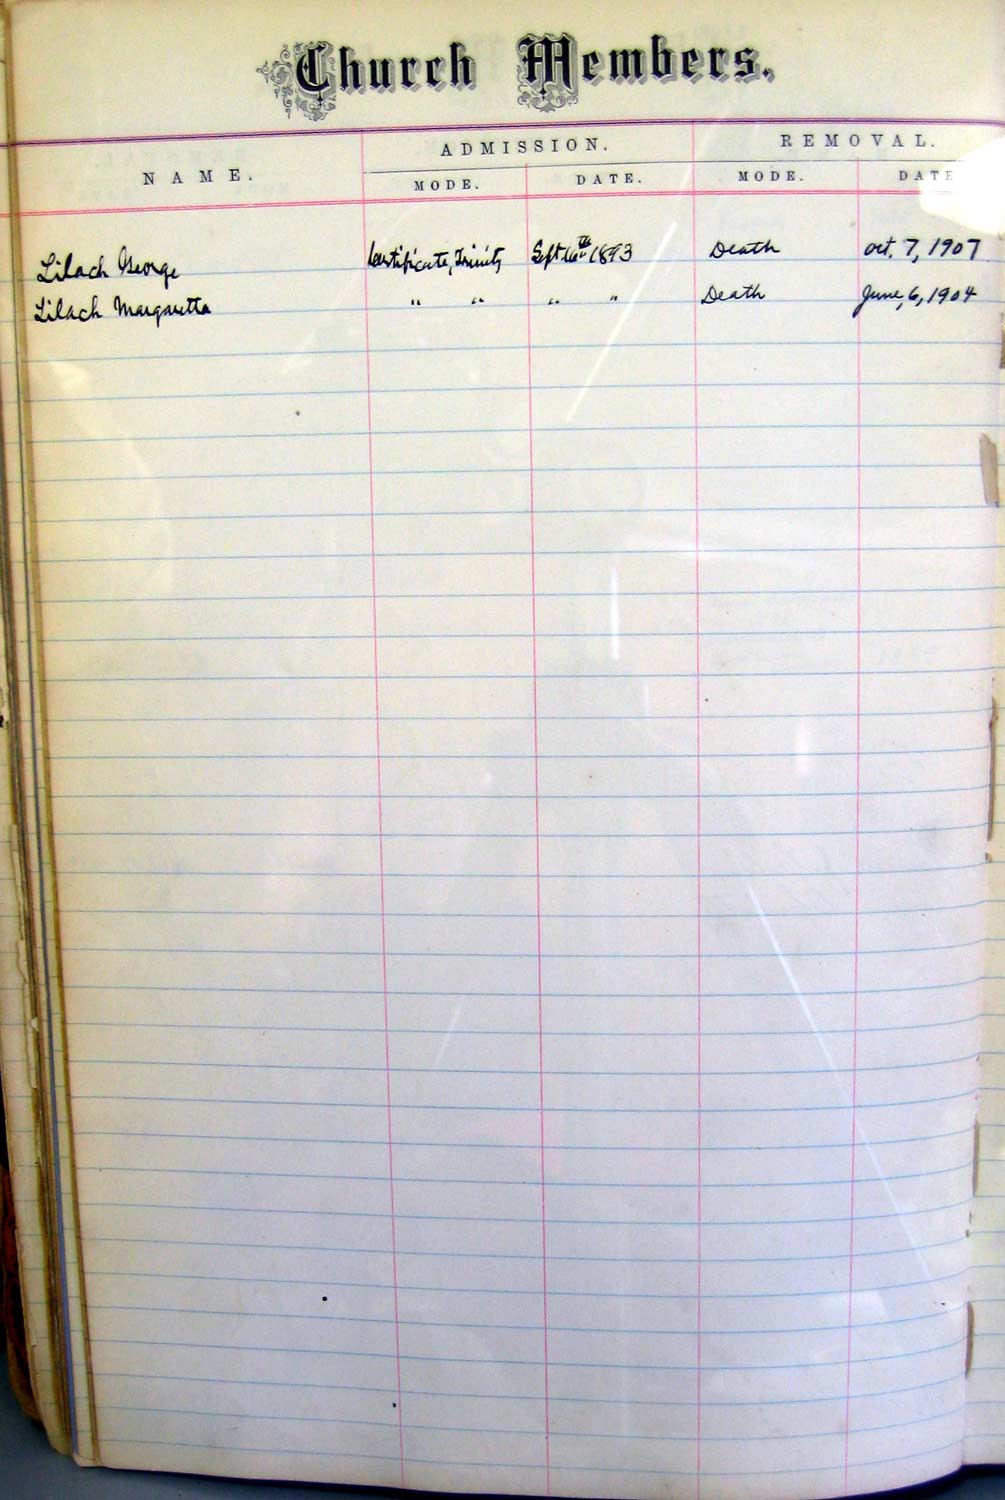 Church Members.
NAME. ADMISSION. REMOVAL.
MODE. DATE. MODE. DATE
Lilach George Certificate, Trinity Sept 16th 1893 Death Oct. 7, 1907
Lilach Margaretta " " " " Death June, 6, 1904